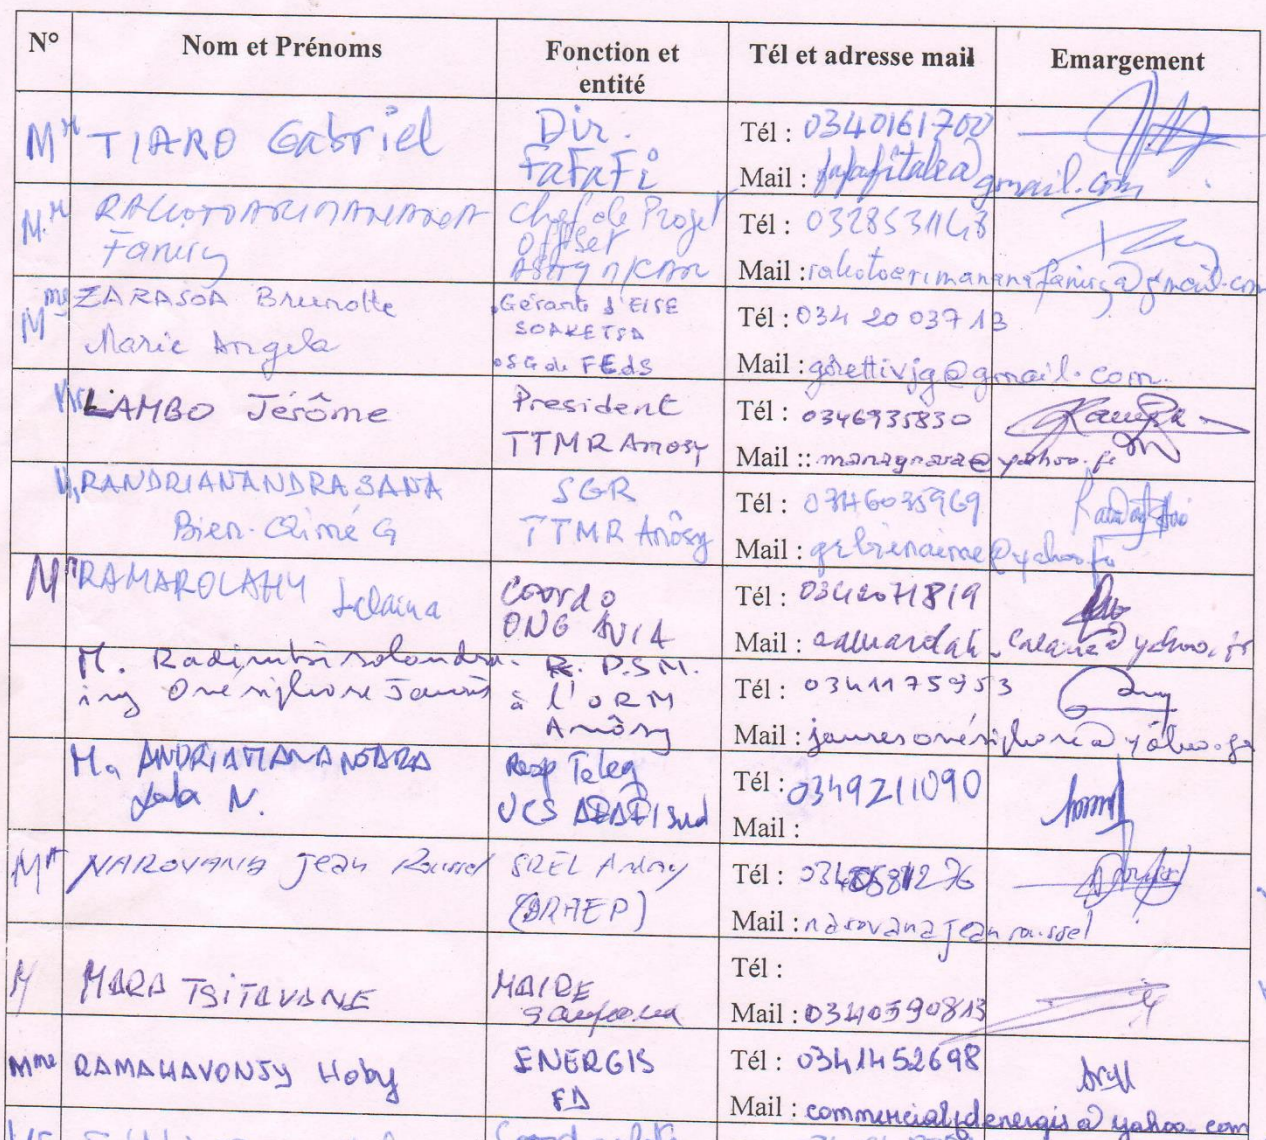 N° Nom et Prénoms Fonction et entité Tél et adresse mail Emargement
Mr TIARO Gabriel Dir. FaFaFi
Tél : 0340161702
Mail : fafafitalea@gmail.com
Mr RAKOTOARIMANANA Faniry Chef de Projet Offset
Tél : 0328531143
Mail : rakotoarimananafaniry@gmail.com
Mme ZARASOA Brunotte Marie Angela
Gérante d'EISE SOAKETSA
SG de FEdS
Tél : 034 20 037 13
Mail : gorettivjg@gmail.com
Mr LAMBO Jérôme President TTMR Anosy
Tél : 0346935830
Mail :: managnara@yahoo.fr
RANDRIANANDRASANA Bien-Aimé G SGR TTMR Anôsy
Tél : 0346035969
Mail : grbienaime@yahoo.fr
Mr RAMAROLAHY Coordo ONG AVIA
Tél : 0342071819
Mail : @yahoo.fr
M. Onésiphore Jaurès
R. P.S.M. à l'ORM Anôsy
Tél : 0341175953
Mail : jauresonésiphore@yahoo.fr
M. ANDRIAMANANTARA Lala N. Resp Teleg UCS Sud
Tél : 0349211090
Mail :
Mr NAROVANA Jean Roussel SREL Anosy (DRAEP)
Tél :
Mail : narovanajeanroussel
M MARA TSITAVANE MAIRE
Tél :
Mail : 0340590813
Mme RAMAHAVONJY Hoby ENERGIS FD
Tél : 0341452698
Mail : commercialfdenergis@yahoo.com